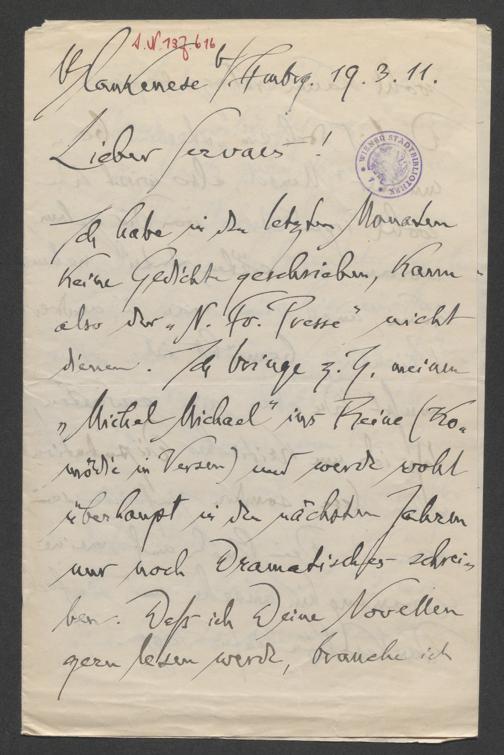 J.N. 137616
Blankenese b/Hmbrg. 19.3.11.
WIENER STADTBIBLIOTHEK
Lieber Servaes!
Ich habe in den letzten Monaten
keine Gedichte geschrieben, kann
also der „N. Fr. Presse“ nicht
dienen. Ich bringe z. Z. meinen
„Michel Michael“ ins Reine (Ko-
mödie in Versen) und werde wohl
überhaupt in den nächsten Jahren
nur noch Dramatisches schrei-
ben. Daß ich Deine Novellen
gern lesen werde, brauche ich